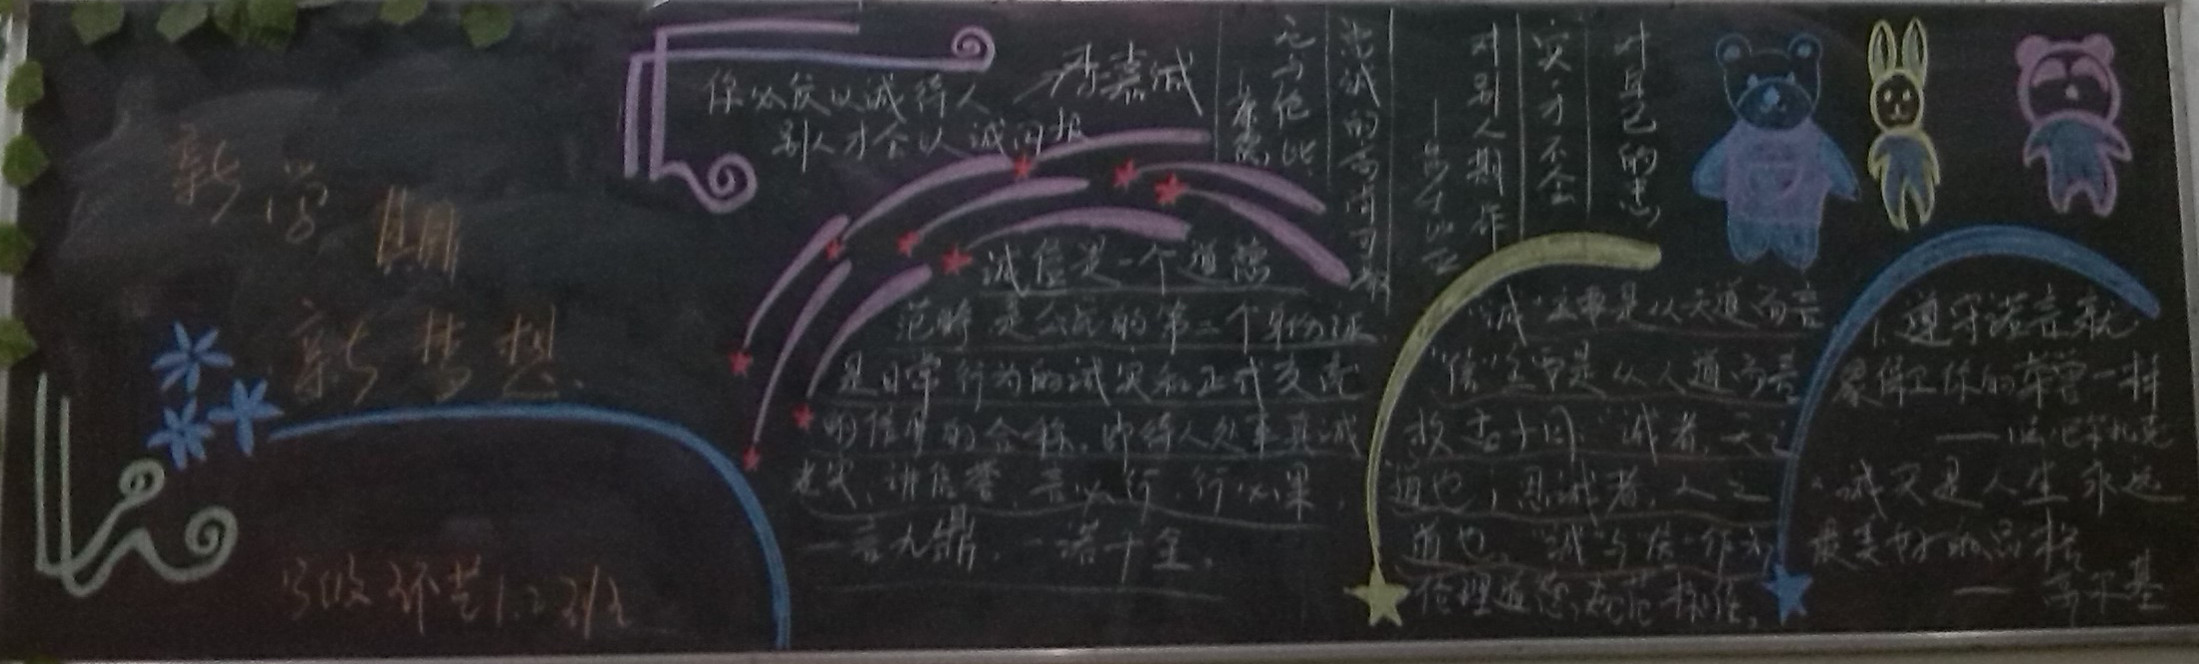 新学期
新梦想
你必须以诚待人
别人才会以诚回报
李嘉诚
诚信是一个道德
范畴是公民的第二个身份证
是日常行为的诚实和正式交流
的信用的合称,即待人处事真诚
老实,讲信誉,言必行,行必果,
一言九鼎,一诺千金。
对自己的忠
实,才不会
对别人欺诈
——莎士比亚
无与伦比
“诚”主要是从天道而言
“信”主要是从人道而言
故孟子曰:“诚者,天之
道也;思诚者,人之
道也,“诚”与信”作为
伦理道德规范和
1.遵守诺言就
象保卫你的荣誉一样
——巴尔扎克
诚实是人生永远
最美好的品格
——高尔基